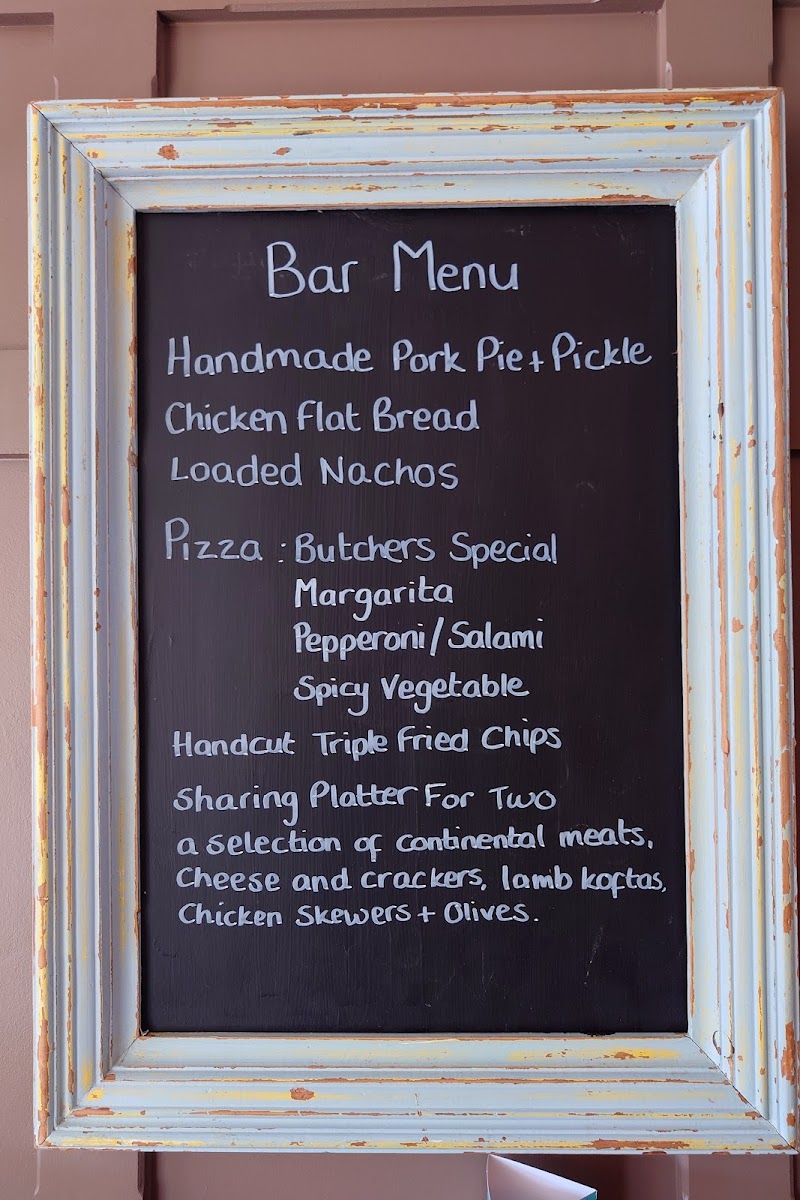 Bar Menu
Handmade Pork Pie + Pickle
Chicken Flat Bread
Loaded Nachos
Pizza : Butchers Special
Margarita
Pepperoni/Salami
Spicy Vegetable
Handcut Triple Fried Chips
Sharing Platter For Two
a selection of continental meats,
Cheese and crackers, lamb koftas,
Chicken Skewers + Olives.